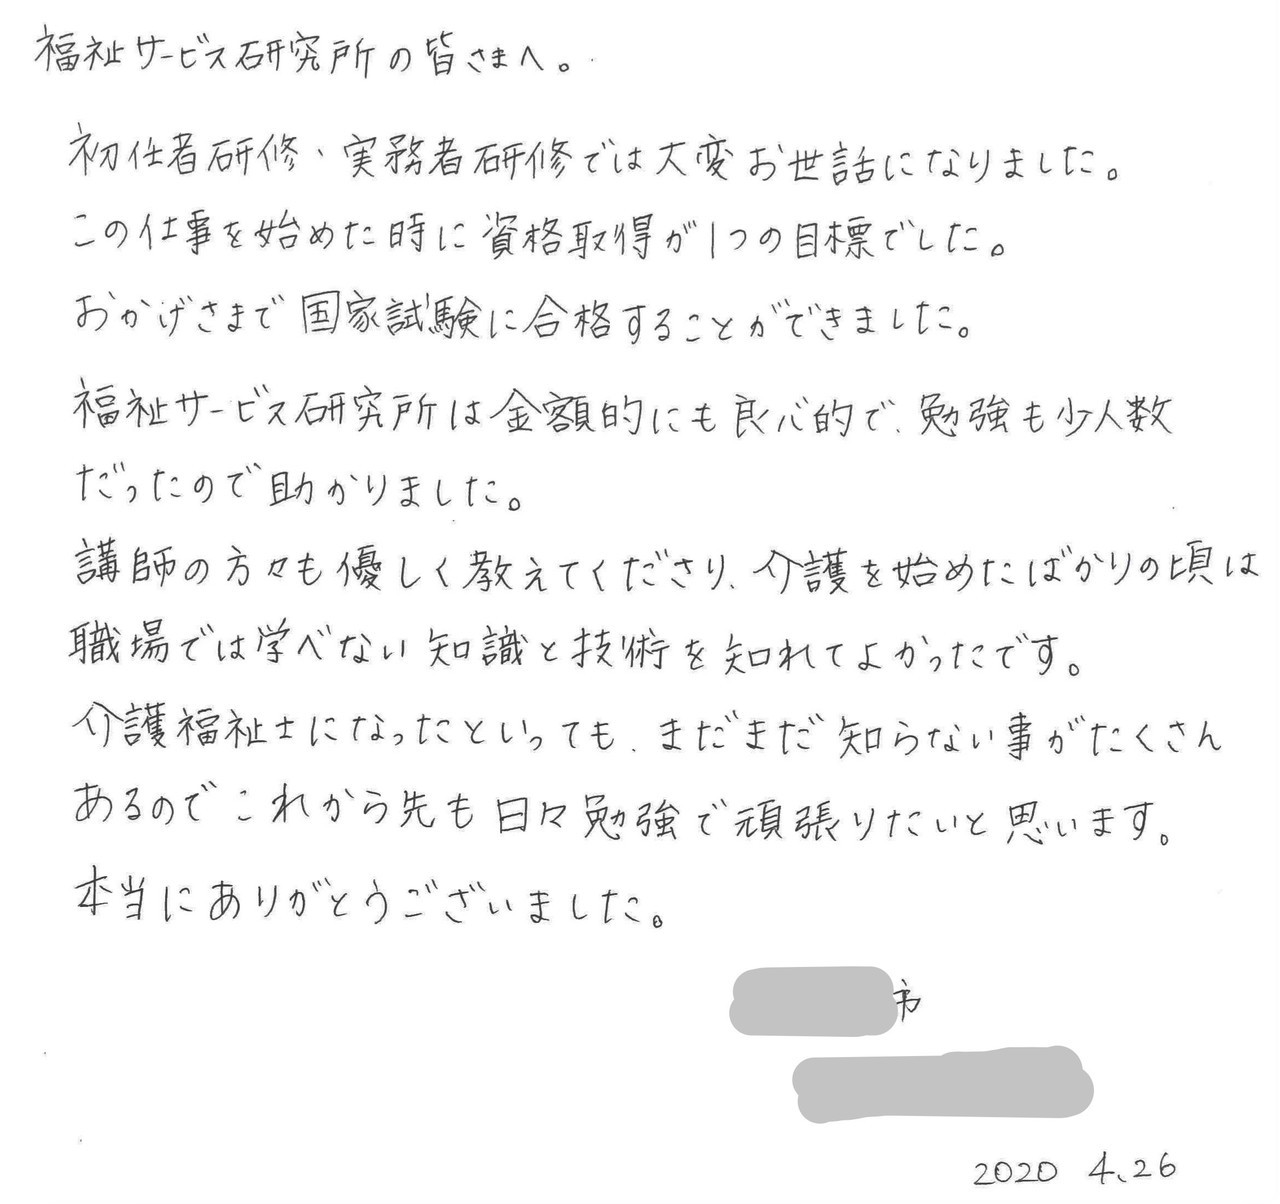 福祉サービス研究所の皆さまへ。
初任者研修、実務者研修では大変お世話になりました。
この仕事を始めた時に資格取得が1つの目標でした。
おかげさまで国家試験に合格することができました。
福祉サービス研究所は金額的にも良心的で、勉強も少人数
だったので助かりました。
講師の方々も優しく教えてくださり、介護を始めたばかりの頃は
職場では学べない知識と技術を知れてよかったです。
介護福祉士になったといっても、まだまだ知らない事がたくさん
あるのでこれから先も日々勉強で頑張りたいと思います。
本当にありがとうございました。
市
2020 4.26